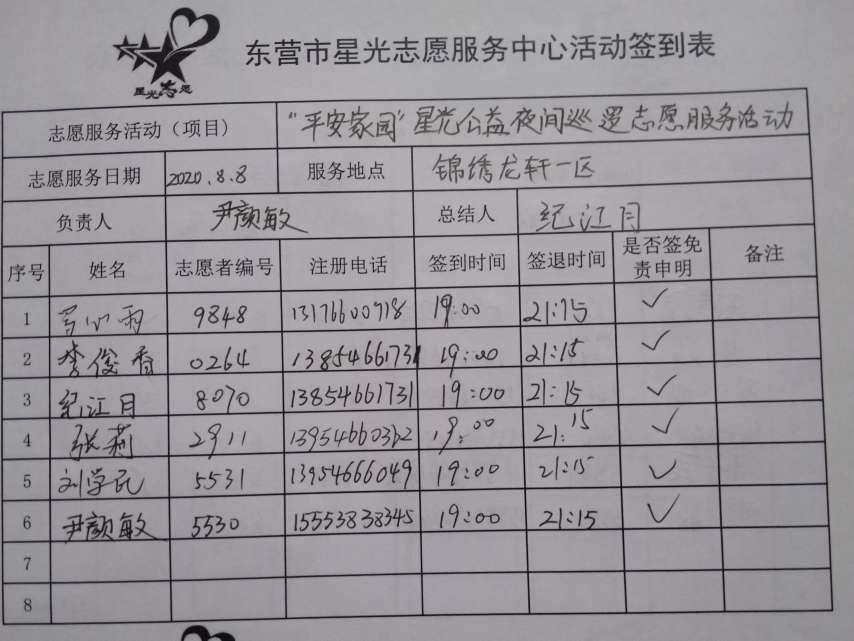 星光志愿
东营市星光志愿服务中心活动签到表
志愿服务活动（项目） “平安家园”星光公益夜间巡逻志愿服务活动
志愿服务日期 2020.8.8 服务地点 锦绣龙轩一区
负责人 尹颜敏 总结人 纪江月
序号 姓名 志愿者编号 注册电话 签到时间 签退时间 是否签免责申明 备注
1 9848 13176600718 19:00 21:15 ✓
2 李俊香 0264 13854661731 19:00 21:15 ✓
3 纪江月 8070 13854661731 19:00 21:15 ✓
4 张莉 2911 19:00 21:15 ✓
5 刘学民 5531 13954666049 19:00 21:15 ✓
6 尹颜敏 5530 15553838345 19:00 21:15 ✓
7
8